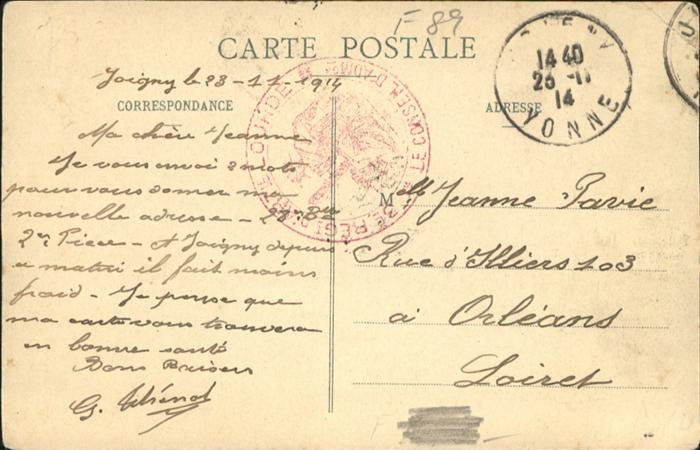 F 89
CARTE POSTALE
Joigny le 23-11-1914
CORRESPONDANCE
ADRESSE
14 40
14
YONNE
LE CONSEIL D'ADMON
Ma chère Jeanne
Je vous envoi 2 mots
pour vous donner ma
nouvelle adresse - 23e Bie
2e Pièce - A Joigny depuis
ce matin il fait moins
froid - Je pense que
ma carte vous trouvera
en bonne santé
Bons Baisers
G. Thénot
Melle Jeanne Pavie
Rue d'Illiers 103
à Orléans
Loiret